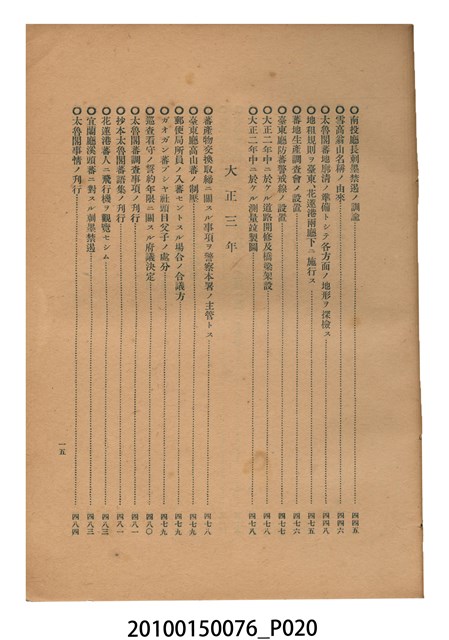 ●南投廳長刺墨禁遏ノ諭諭……四四五
●雪高翁山名稱ノ由來……四四六
●太魯閣蕃地廓清ノ準備トシテ各方面ノ地形ヲ探檢ス……四四八
●地租規則ヲ臺東、花蓮港兩廳下ニ施行ス……四七五
●蕃地生產調查會ノ設置……四七六
●臺東廳防蕃警戒線ノ設置……四七七
●大正二年中ニ於ケル道路開修及橋梁架設……四七八
●大正二年中ニ於ケル測量竝製圖……四七八
大正三年
●蕃產物交換取締ニ關スル事項ヲ警察本署ノ主管トス……四七八
●臺東廳高山蕃ノ制壓……四七九
●郵便局所員ノ入蕃セントスル場合ノ合議方……四七九
●ガオガン蕃ブシヤ社頭目父子ノ處分……四七九
●巡查看守ノ誓約年限ニ關スル府議決定……四八〇
●太魯閣蕃調查事項ノ刊行……四八一
●抄本太魯閣蕃語集ノ刊行……四八一
●花蓮港蕃人ニ飛行機ヲ觀覽セシム……四八三
●宜蘭廳溪頭蕃ニ對スル刺墨禁遏……四八三
●太魯閣事情ノ刊行……四八四
一五
20100150076_P020